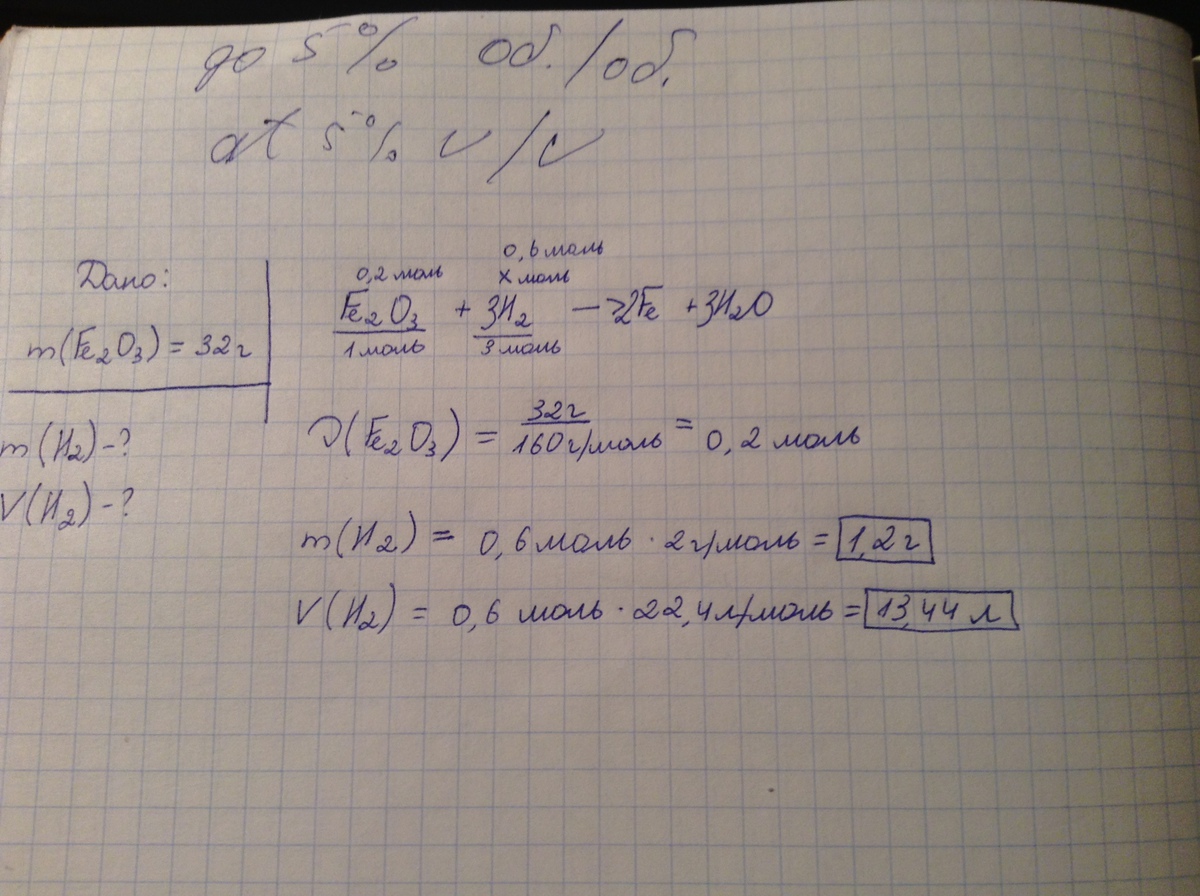 до 5% об./об.
at 5% v/v
Дано:
m(Fe₂O₃) = 32г
m(H₂)-?
V(H₂)-?
0,6 моль
0,2 моль х моль
Fe₂O₃ + 3H₂ —> 2Fe + 3H₂O
1 моль 3 моль
ν(Fe₂O₃) = 32г / 160г/моль = 0,2 моль
m(H₂) = 0,6 моль · 2г/моль = 1,2г
V(H₂) = 0,6 моль · 22,4л/моль = 13,44 л